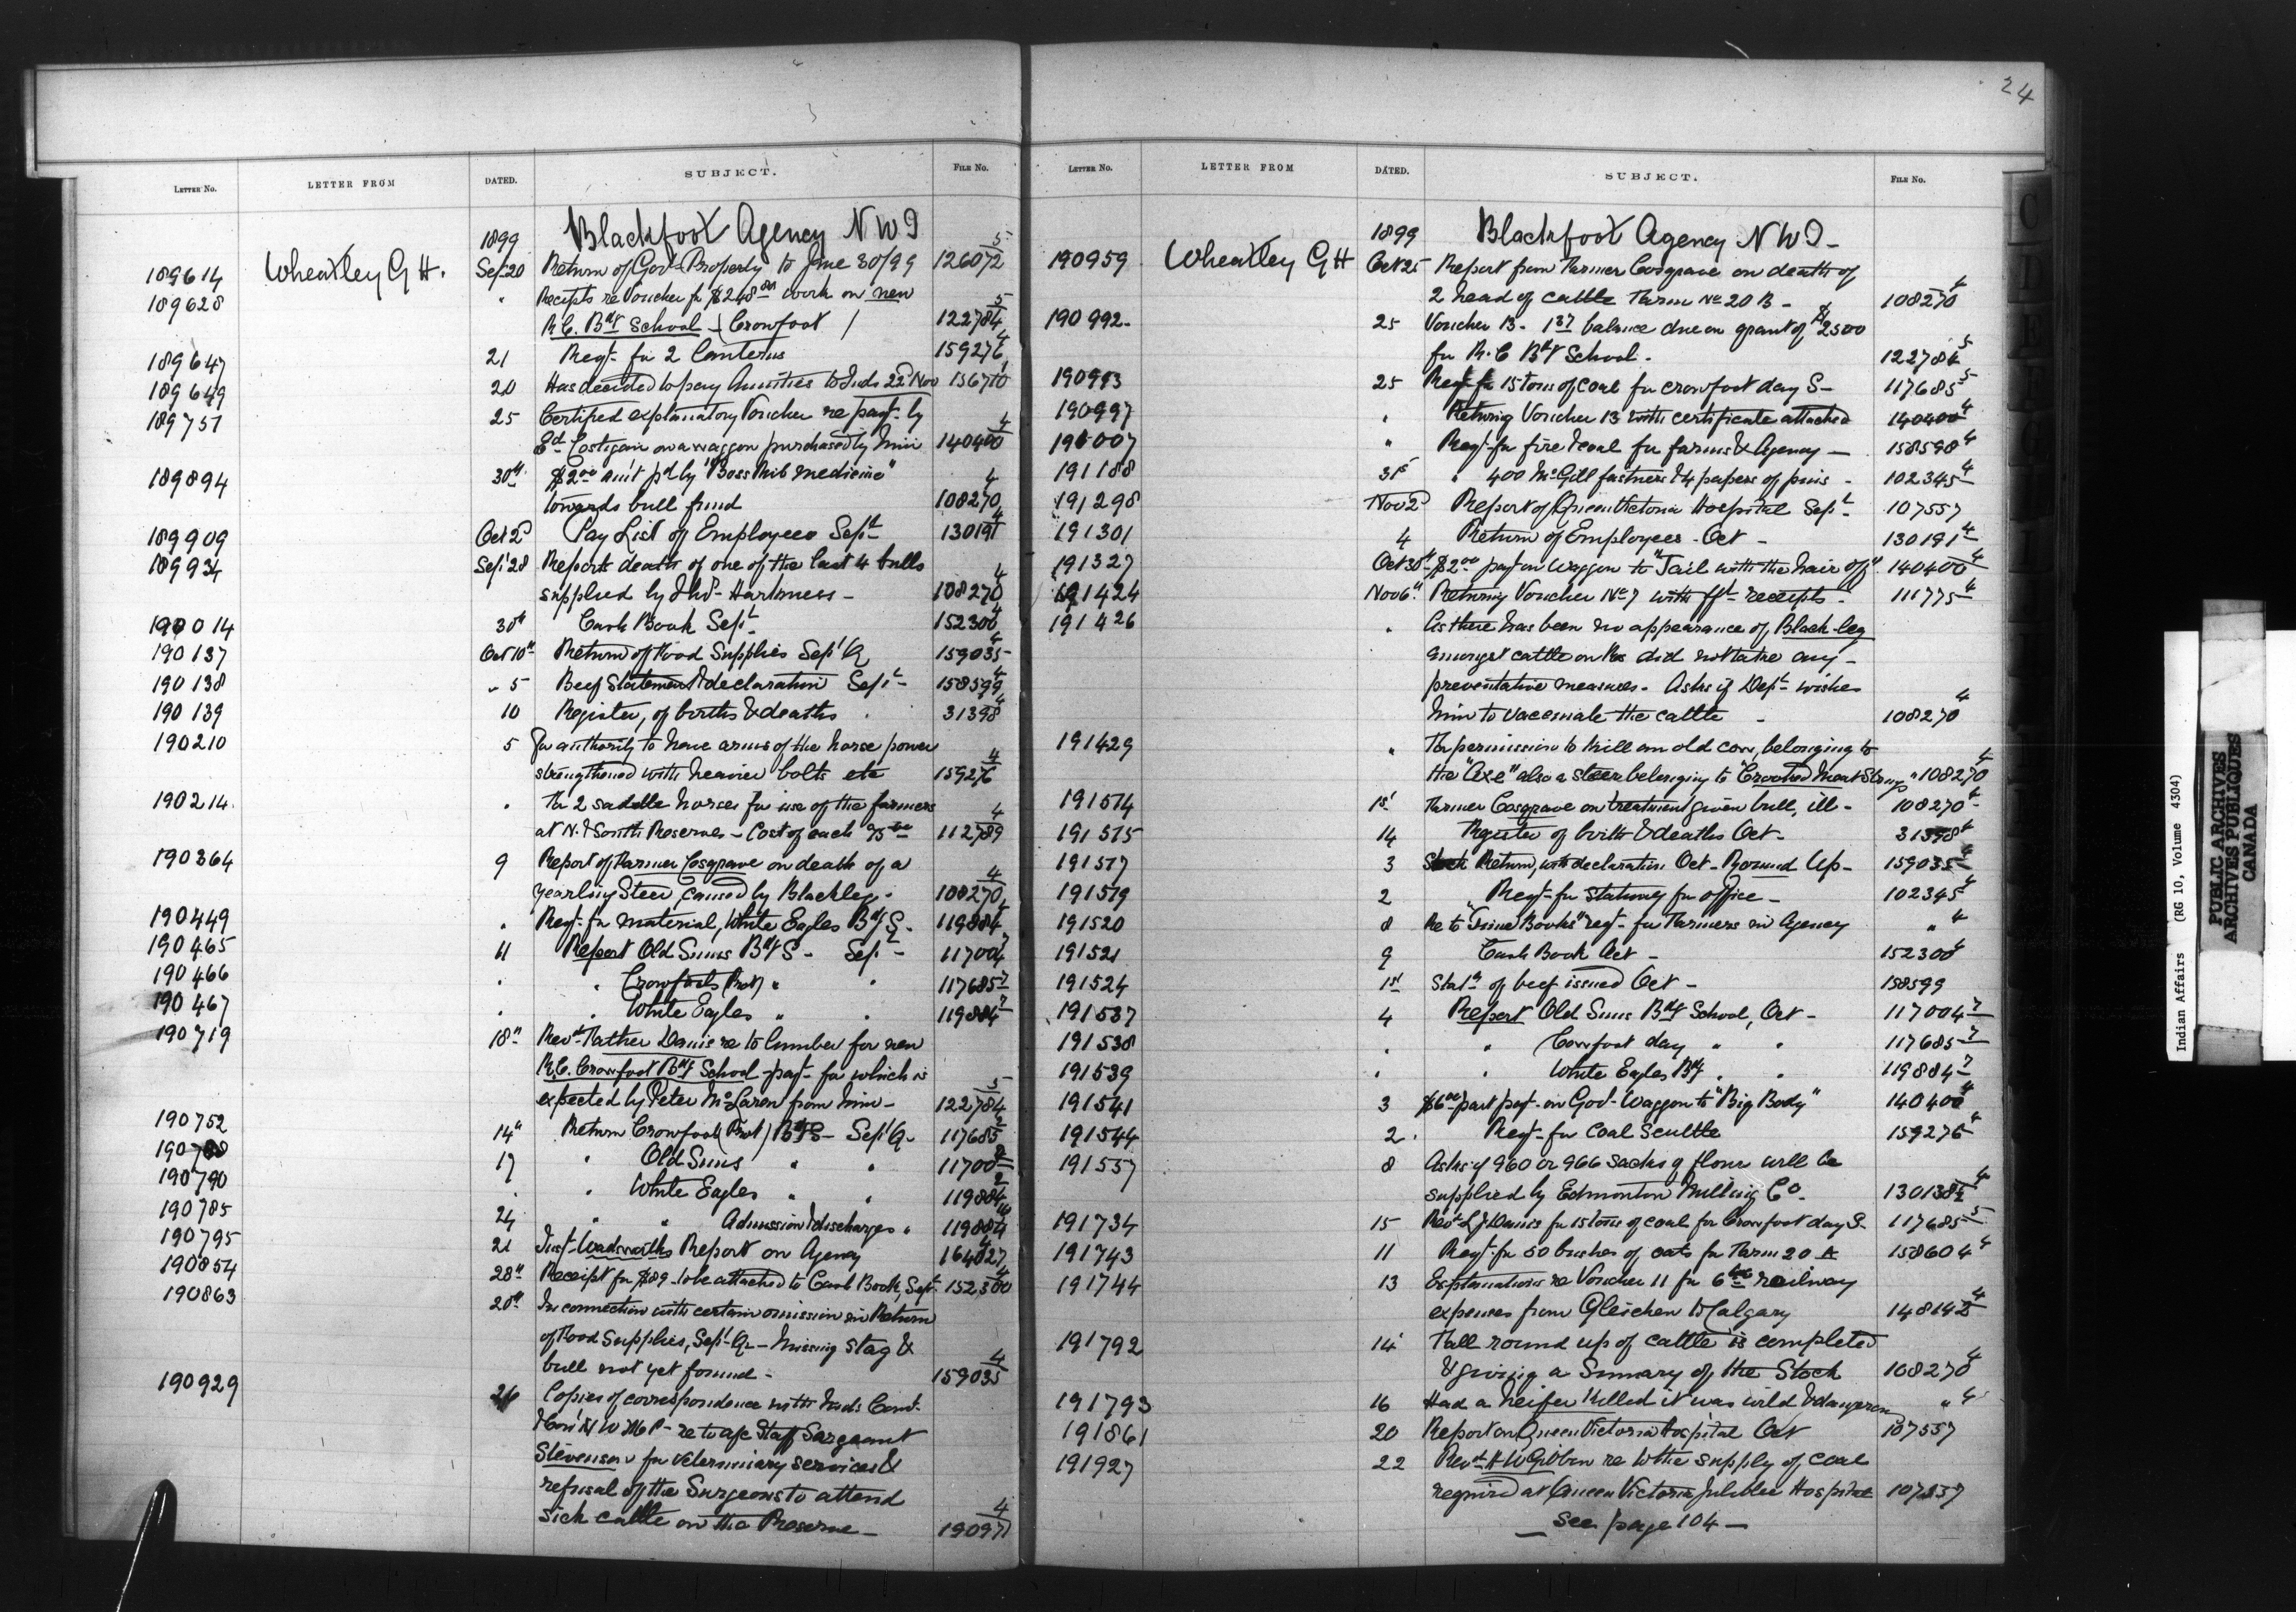 24
LETTER NO. LETTER FROM DATED. SUBJECT. FILE NO.
1899 Blackfoot Agency NWT
189614 Wheatley G H. Sep 20 Return of Govt Property to June 30/99 126072 5
189628 " Receipts re Voucher for $248 work on new
R.C. Bdg School (Crowfoot) 122784 5
189647 21 Reqt for 2 Lanterns 159276 4
189649 20 Has decided to pay Annuities to Inds 22d Nov 156710
189751 25 Certified explanatory Voucher re payt by
Ed Costigan on a waggon purchased by him 140400 4
189894 30th $2.00 am't pd by "Boss Rib Medicine"
towards bull fund 108270 4
189909 Oct 2d Pay List of Employees Sept 130191 4
189934 Sept 28 Reports death of one of the last 4 bulls
supplied by Harkness - 108270 4
190014 30th Cash Book Sept 152300 4
190137 Oct 10th Return of Food Supplies Sept Q 159035 4
190138 " 5 Beef Statement & declaration Sept 158599 4
190139 10 Register, of births & deaths 31398 4
190210 5 For authority to have arms of the horse power
strengthened with heavier bolts etc 159276 4
190214 " For 2 saddle horses for use of the farmers
at N. & South Reserves - Cost of each 112789 4
190364 9 Report of Farmer Cosgrave on death of a
yearling Steer caused by Blackleg. 108270 4
190449 " Reqt for material, White Eagles Bdg S. 119884
190465 11 Report Old Suns Bdg S - Sept - 117004 7
190466 " " Crowfoots (Prot) " " 117685 7
190467 " " White Eagles " " 119884 7
190719 18th Revd Father Danis re to lumber for new
R.C. Crowfoot Bdg School - payt for which is
expected by Peter McLaren from him - 122784 5
190752 14th Return Crowfoot (Prot) Bdg S - Sept Q - 117685 2
17 " Old Suns " " 2
190790 " " White Eagles " " 119884 2
190785 24 " " Admission & discharges " 119884 10
190795 21 Inspt Wadsworths Report on Agency 164027 4
190854 28th Receipt for $89 - to be attached to Cash Book, Sept 152300 4
190863 20th In connection with certain omission in Return
of Food Supplies, Sept Qr - Missing Stag &
bull not yet found - 159035 4
190929 26 Copies of correspondence with Inds Comr
& Com N W M P - re to a/c Staff Sargeant
Stevenson for veterinary services &
refusal of the Surgeons to attend
Sick cattle on the Reserve - 190971 4
LETTER NO. LETTER FROM DATED. SUBJECT. FILE NO.
1899 Blackfoot Agency NWT -
190959 Wheatley G H Oct 25 Report from Farmer Cosgrave on death of
2 head of cattle Farm No 20 B - 108270 4
190992 25 Voucher 13 - 1st balance due on grant of $2500
for R.C Bdg School - 122784 5
190993 25 Reqt for 15 tons of coal for Crowfoot day S - 117685 5
190997 " Returng Voucher 13 with certificate attached 140400 4
191007 " Reqt for fire & coal for farms & Agency - 158598 4
191188 31st " 400 McGill fastners & 4 papers of pins - 102345 4
191298 Nov 2d Report of Queen Victoria Hospital Sept 107557
191301 4 Return of Employees - Oct - 130191 4
191327 Oct 30th $2.00 payt on Waggon to "Tail with the hair off" 140400 4
191424 Nov 6th Returng Voucher No 7 with receipts 111775 4
191426 " As there has been no appearance of Black-leg
amongst cattle on Res did not take any -
preventative measures. Asks if Dept wishes
him to vaccinate the cattle - 108270 4
191429 " For permission to kill an old cow, belonging to
the "Axe" also a steer belonging to "Crooked Meat Strings" 108270 4
191514 1st Farmer Cosgrave on treatment given bull, ill - 108270 4
191515 14 Register of births & deaths Oct - 31398 4
191517 3 Stock Return, with declaration Oct - Round Up - 159035 4
191519 2 Reqt for stationery for office - 102345 4
191520 8 Re to "Time Books" reqt for Farmers in Agency " 4
191521 9 Cash Book Oct - 152300 4
191524 1st Statt of beef issued Oct - 158599
191537 4 Report Old Suns Bdg School, Oct - 117004 7
191538 " " Crowfoot day " " 117685 7
191539 " " White Eagles Bdg " " 119884 7
191541 3 $6.00 part payt on Govt Waggon to "Big Body" 140400 4
191544 2 Reqt for Coal Scuttle 159276 4
191557 8 Asks if 960 or 966 sacks of flour will be
supplied by Edmonton Milling Co. 4
191734 15 Revd L J Danis for 15 tons of coal for Crowfoot day S - 117685 5
191743 11 Reqt for 50 bushes of oats for Farm 20 A 158604 4
191744 13 Explanations re Voucher 11 for railway
expenses from Gleichen to Calgary 148142 4
191792 14 Fall round up of cattle is completed
& giving a Sumary of the Stock 108270 4
191793 16 Had a heifer killed it was wild & dangerous " 4
191861 20 Report on Queen Victoria Hospital Oct 107557
191927 22 Revd H W Gibbon re to the supply of coal
required at Queen Victoria Jubilee Hospital 107557
- See page 104 -
Indian Affairs (RG 10, Volume 4304)
PUBLIC ARCHIVES
ARCHIVES PUBLIQUES
CANADA